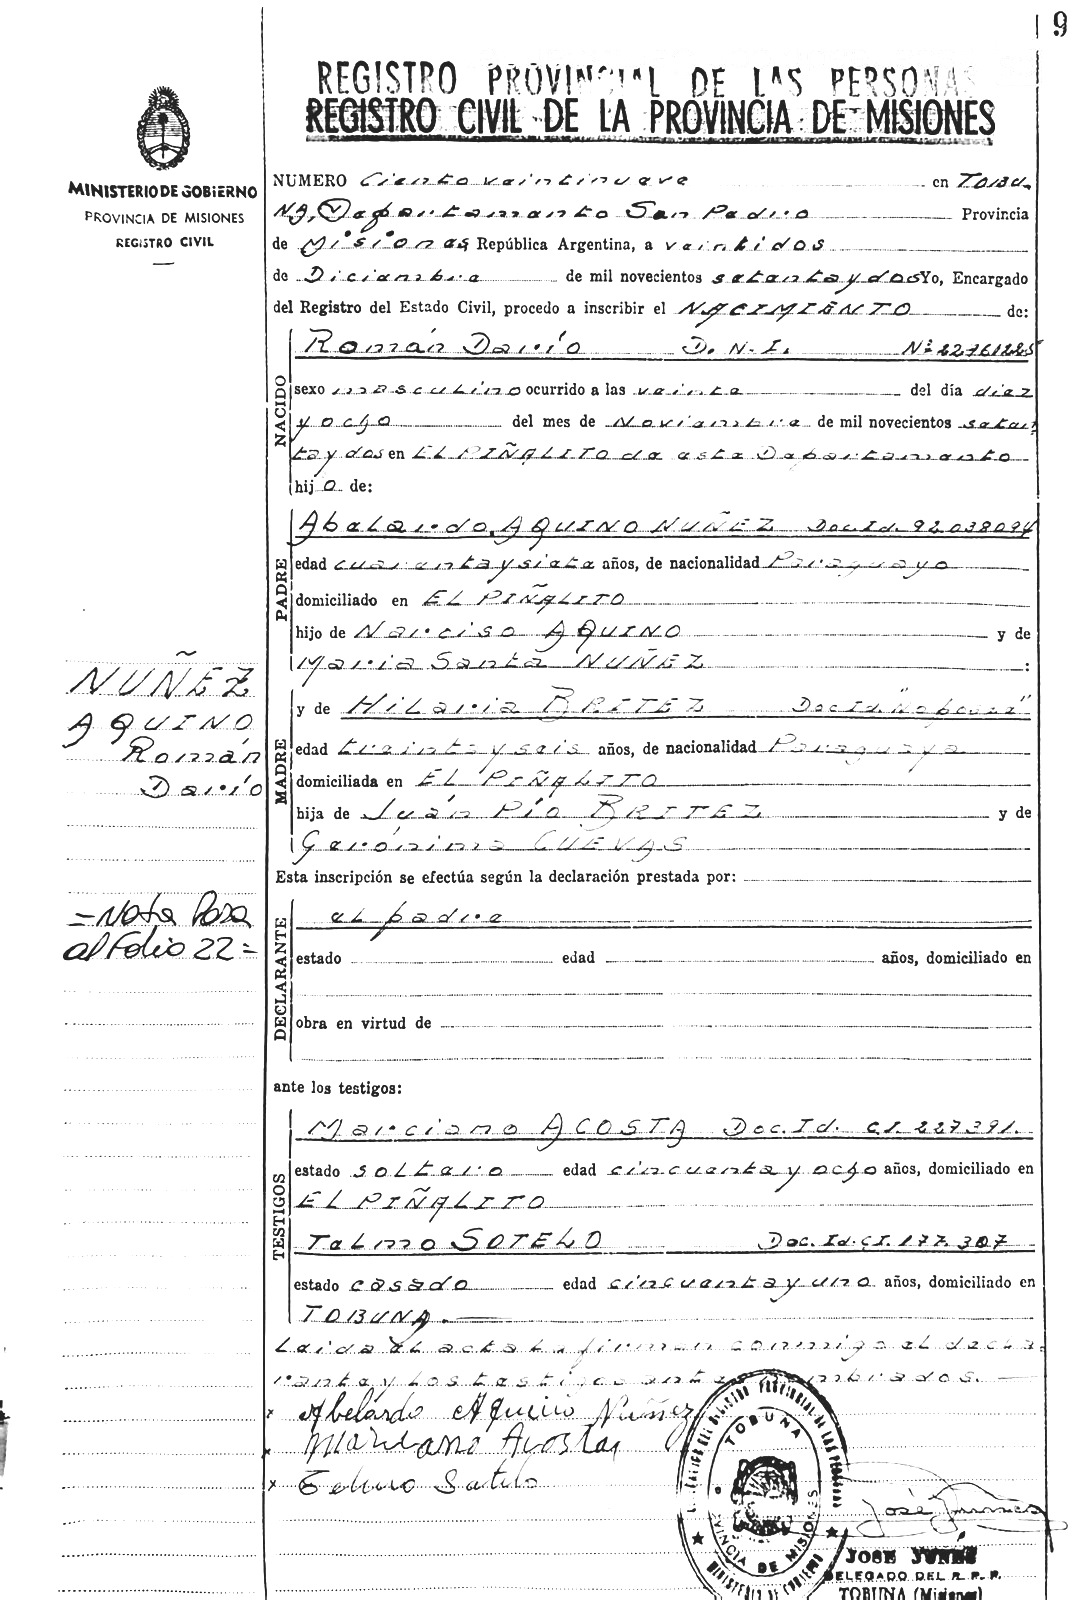 9
REGISTRO PROVINCIAL DE LAS PERSONAS
REGISTRO CIVIL DE LA PROVINCIA DE MISIONES
MINISTERIO DE GOBIERNO
PROVINCIA DE MISIONES
REGISTRO CIVIL
NUMERO Ciento veintinueve en TOBU-
NA, Departamento San Pedro Provincia
de Misiones República Argentina, a veintidos
de Diciembre de mil novecientos setenta y dos Yo, Encargado
del Registro del Estado Civil, procedo a inscribir el NACIMIENTO de:
NACIDO
Román Darío D.N.I. Nº 22761225
sexo masculino ocurrido a las veinte del día diez
y ocho del mes de Noviembre de mil novecientos seten-
ta y dos en EL PIÑALITO de este Departamento
hijo de:
PADRE
Abelardo AQUINO NUÑEZ Doc.Id. 92.038094
edad cuarenta y siete años, de nacionalidad Paraguayo
domiciliado en EL PIÑALITO
hijo de Narciso AQUINO y de
Maria Santa NUÑEZ :
NUÑEZ
AQUINO
Román
Darío
MADRE
y de Hilaria BRITEZ Doc Id "No posee"
edad treinta y seis años, de nacionalidad Paraguaya
domiciliada en EL PIÑALITO
hija de Juán Pío BRITEZ y de
Gerónima CUEVAS
Esta inscripción se efectúa según la declaración prestada por:
= Nota Pasa
al Folio 22 =
DECLARANTE
el padre
estado edad años, domiciliado en
obra en virtud de
ante los testigos:
TESTIGOS
Marciano ACOSTA Doc.Id. C.I. 227391.
estado soltero edad cincuenta y ocho años, domiciliado en
EL PIÑALITO
Telmo SOTELO Doc. Id. C.I. 177.307
estado casado edad cincuenta y uno años, domiciliado en
TOBUNA.
Leida el acta la firman conmigo el decla-
rante y los testigos antes nombrados.
x Abelardo Aquino Nuñez
x Marciano Acosta
x Telmo Sotelo
TOBUNA
PROVINCIA DE MISIONES
MINISTERIO DE GOBIERNO
José Junes
JOSE JUNES
DELEGADO DEL R. P. P.
TOBUNA (Misiones)